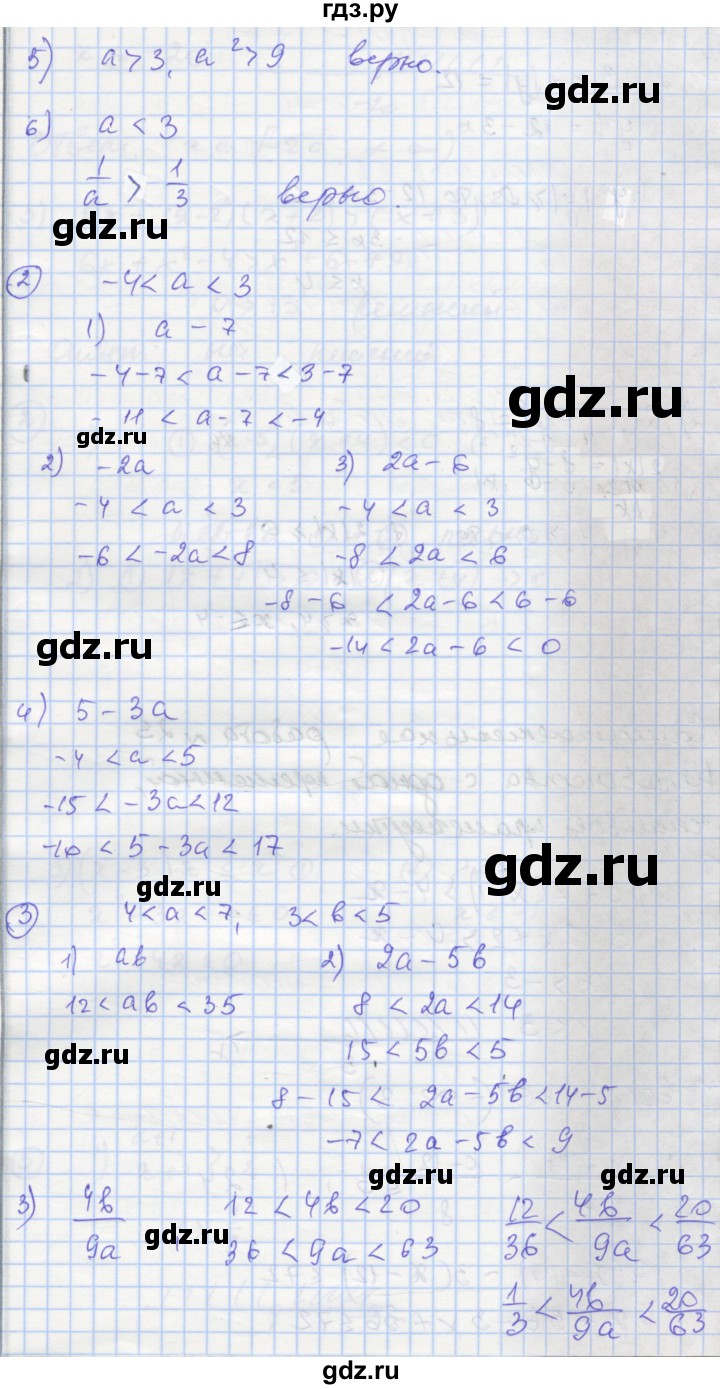 гдз.ру
5) a > 3, a² > 9 верно.
gdz.ru
6) a < 3
1/a > 1/3 верно.
gdz.ru
② -4 < a < 3
1) a - 7
-4-7 < a-7 < 3-7
gdz.ru
-11 < a-7 < -4
gdz.ru
2) -2a
-4 < a < 3
-6 < -2a < 8
3) 2a-6
-4 < a < 3
-8 < 2a < 6
-8-6 < 2a-6 < 6-6
gdz.ru
-14 < 2a-6 < 0
4) 5-3a
-4 < a < 5
-15 < -3a < 12
-10 < 5-3a < 17
gdz.ru
gdz.ru
③ 4 < a < 7; 3 < b < 5
1) ab
12 < ab < 35
gdz.ru
2) 2a-5b
8 < 2a < 14
15 < 5b < 5
gdz.ru
8-15 < 2a-5b < 14-5
-7 < 2a-5b < 9
gdz.ru
3) 4b/9a
12 < 4b < 20
36 < 9a < 63
gdz.ru
12/36 < 4b/9a < 20/63
1/3 < 4b/9a < 20/63
gdz.ru